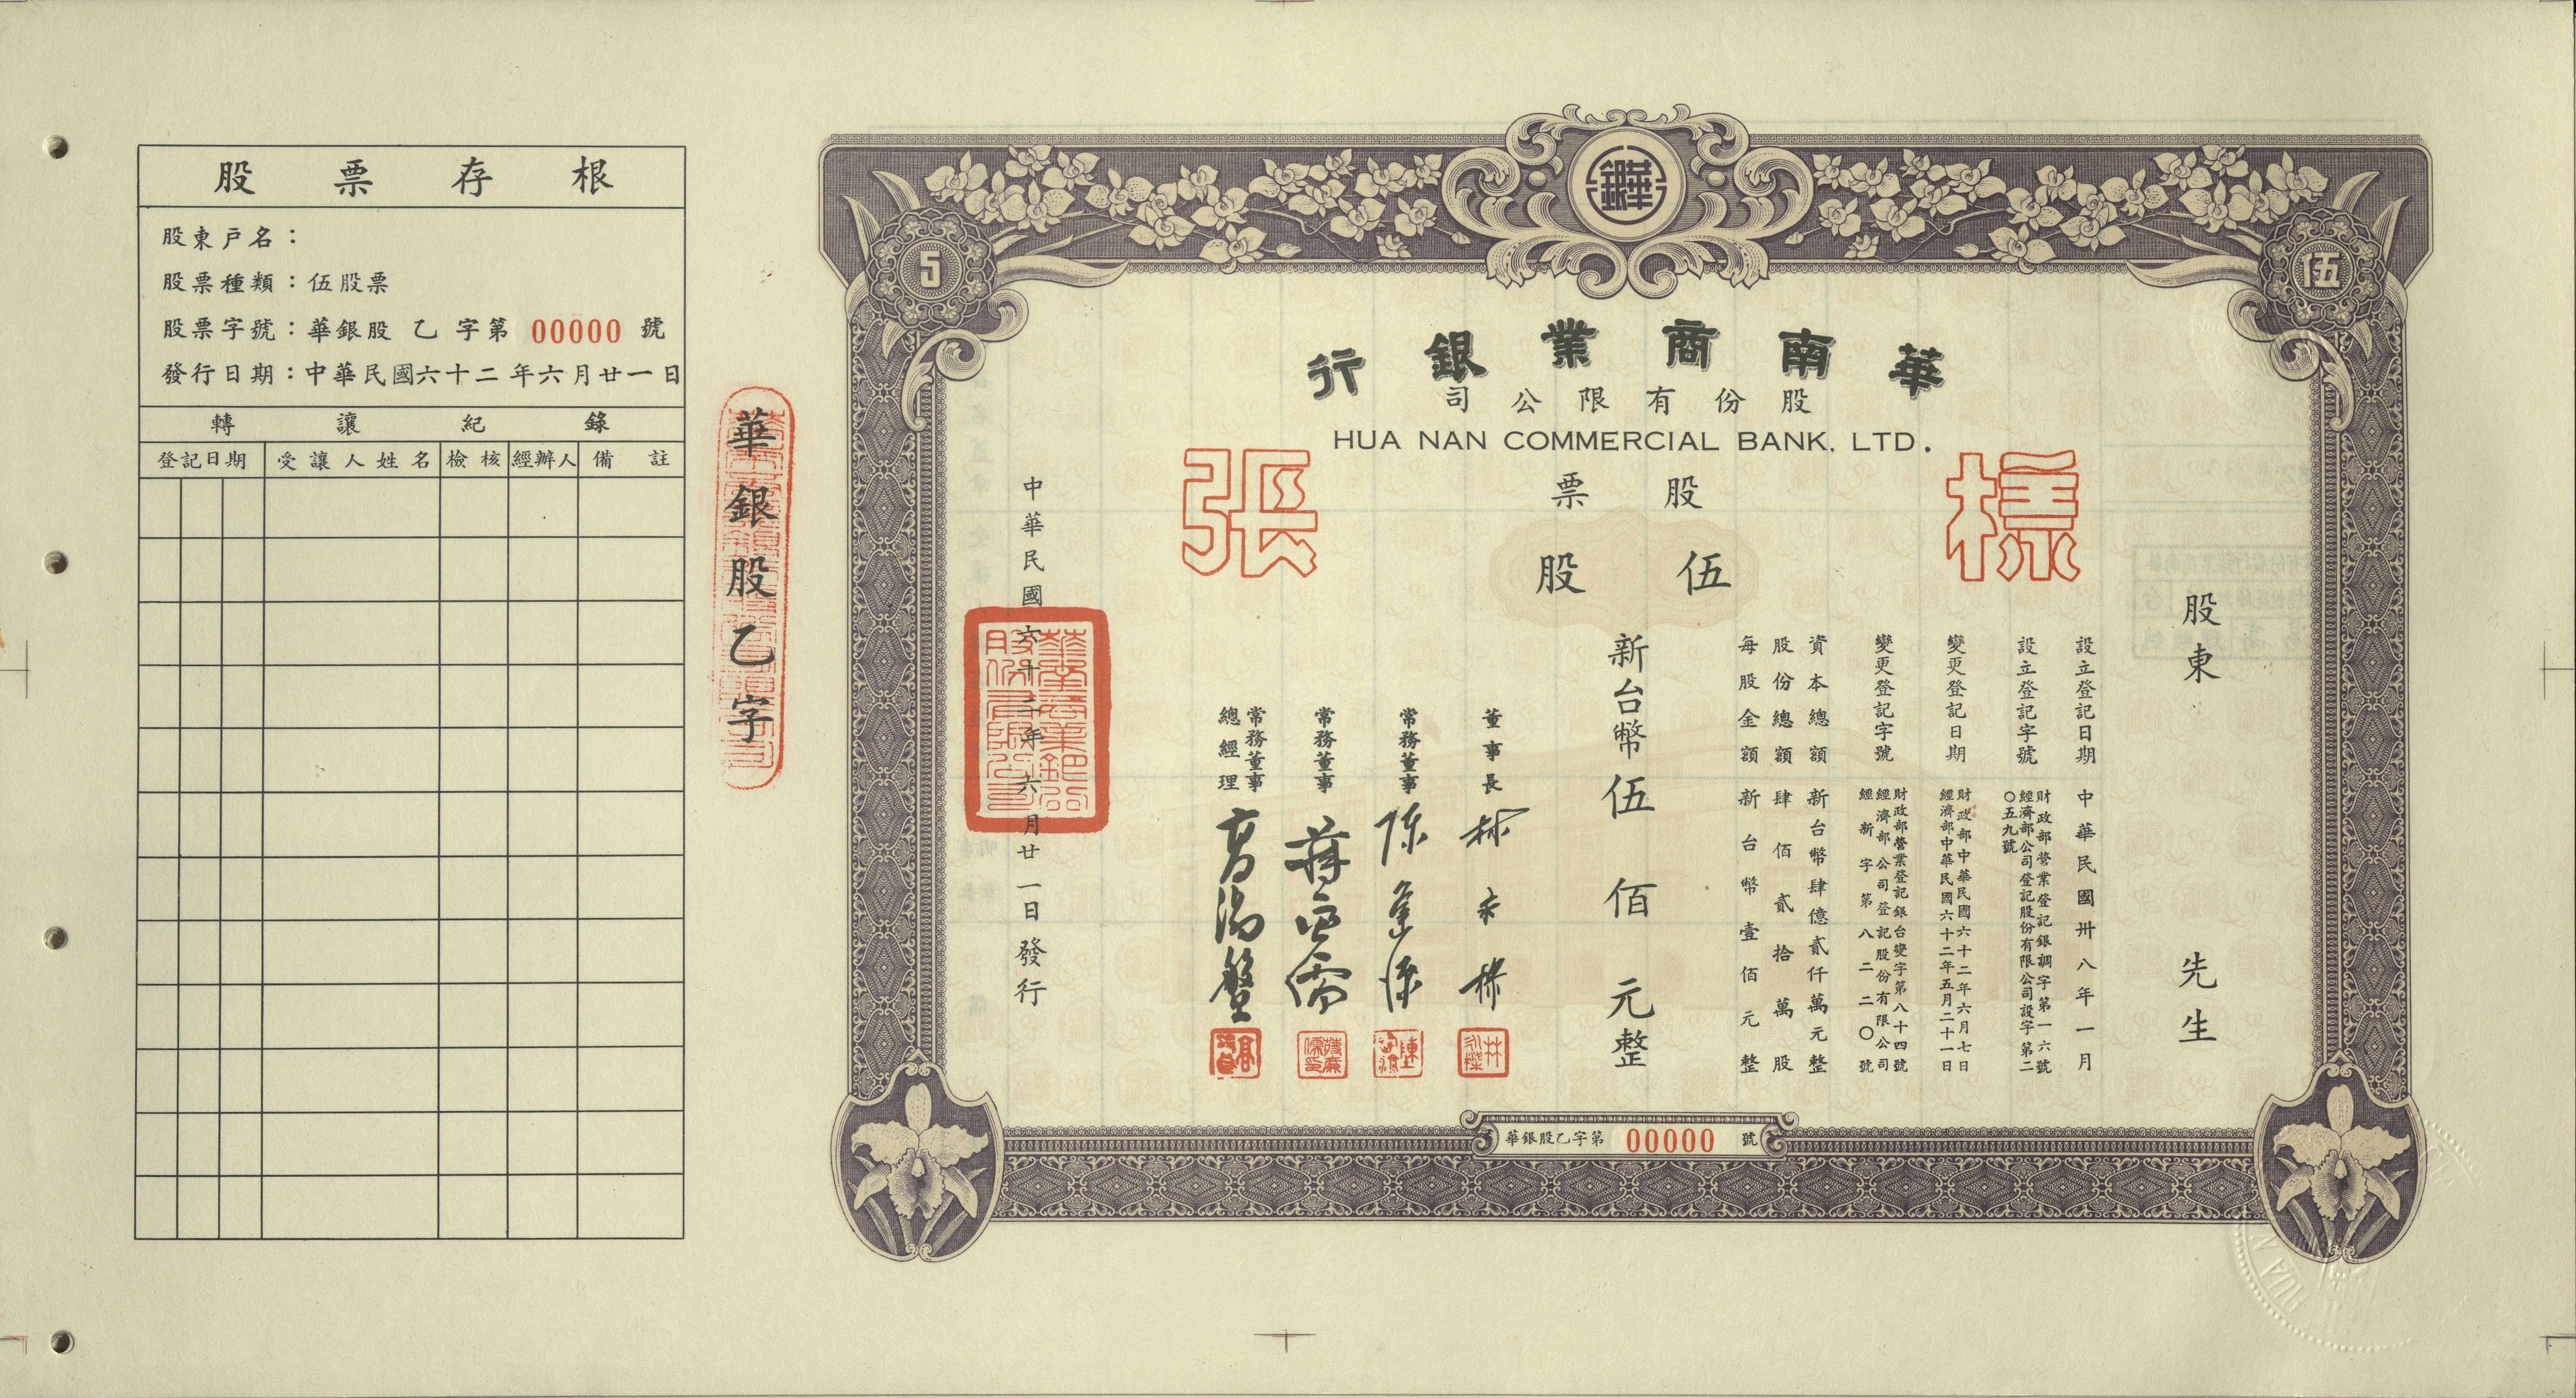 股票存根
股東戶名：
股票種類：伍股票
股票字號：華銀股 乙 字第 00000 號
發行日期：中華民國六十二年六月廿一日
轉讓紀錄
登記日期 受讓人姓名 檢核 經辦人 備註
華銀股乙字
5
華銀
伍
華南商業銀行
股份有限公司
HUA NAN COMMERCIAL BANK, LTD.
標張
股票
伍股
股東 先生
設立登記日期 中華民國卅八年一月
設立登記字號 財政部營業登記銀調字第一六號
經濟部公司登記股份有限公司設字第二
〇五九號
變更登記日期 財政部中華民國六十二年六月七日
經濟部中華民國六十二年五月二十一日
變更登記字號 財政部營業登記銀台變字第八十四號
經濟部公司登記股份有限公司
經新字第八二二〇號
資本總額 新台幣肆億貳仟萬元整
股份總額 肆佰貳拾萬股
每股金額 新台幣壹佰元整
新台幣伍佰元整
董事長 林永樑
常務董事 陳
常務董事 蔣
常務董事
總經理 高湯盤
中華民國六十二年六月廿一日發行
華銀股乙字第 00000 號
HUA N